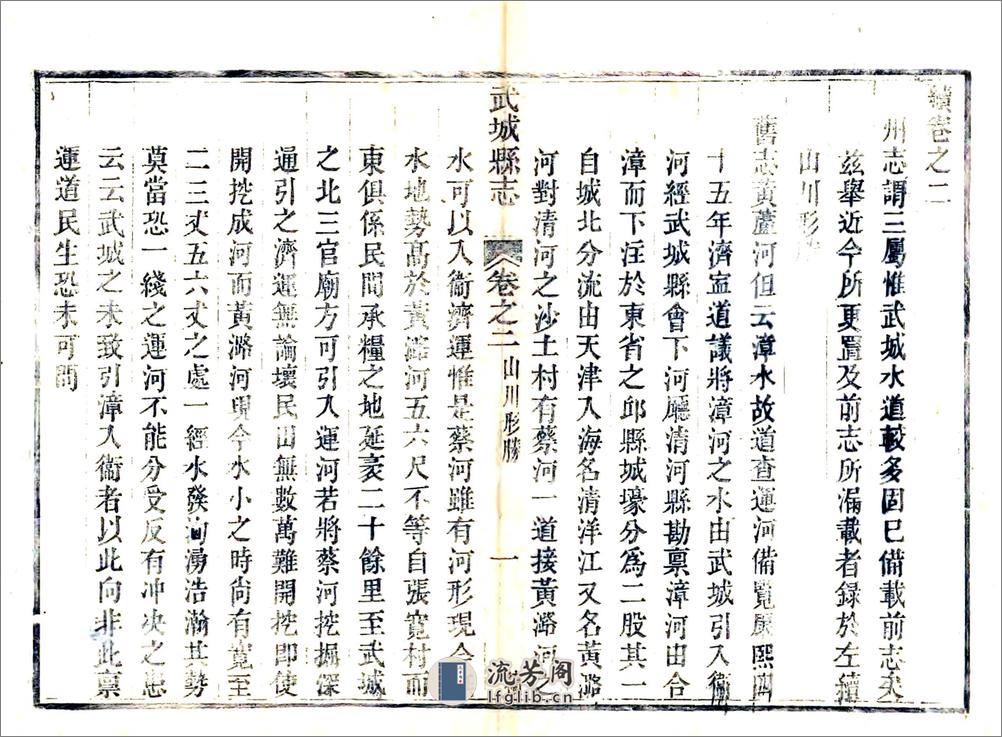 續卷之二
州志謂三屬惟武城水道較多固已備載前志矣
茲舉近今所更置及前志所漏載者錄於左續
山川形
舊志黃蘆河但云漳水故道查運河備覽康熙四
十五年濟寧道議將漳河之水由武城引入衞
河經武城縣會下河廳清河縣勘稟漳河由合
漳而下注於東省之邱縣城壕分爲二股其一
自城北分流由天津入海名清洋江又名黃潞
河對清河之沙土村有蔡河一道接黃潞河
武城縣志
卷之二
山川形勝
一
水可以入衞濟運惟是蔡河雖有河形現今
水地勢高於黃潞河五六尺不等自張寬村而
東俱係民間承糧之地延袤二十餘里至武城
之北三官廟方可引入運河若將蔡河挖掘深
通引之濟運無論壞民田無數萬難開挖即使
開挖成河而黃潞河現今水小之時尙有寬至
二三丈五六丈之處一經水發洶湧浩瀚其勢
莫當恐一綫之運河不能分受反有冲决之患
云云武城之未致引漳入衞者以此向非此稟
運道民生恐未可問
流芳阁
lfglib.cn